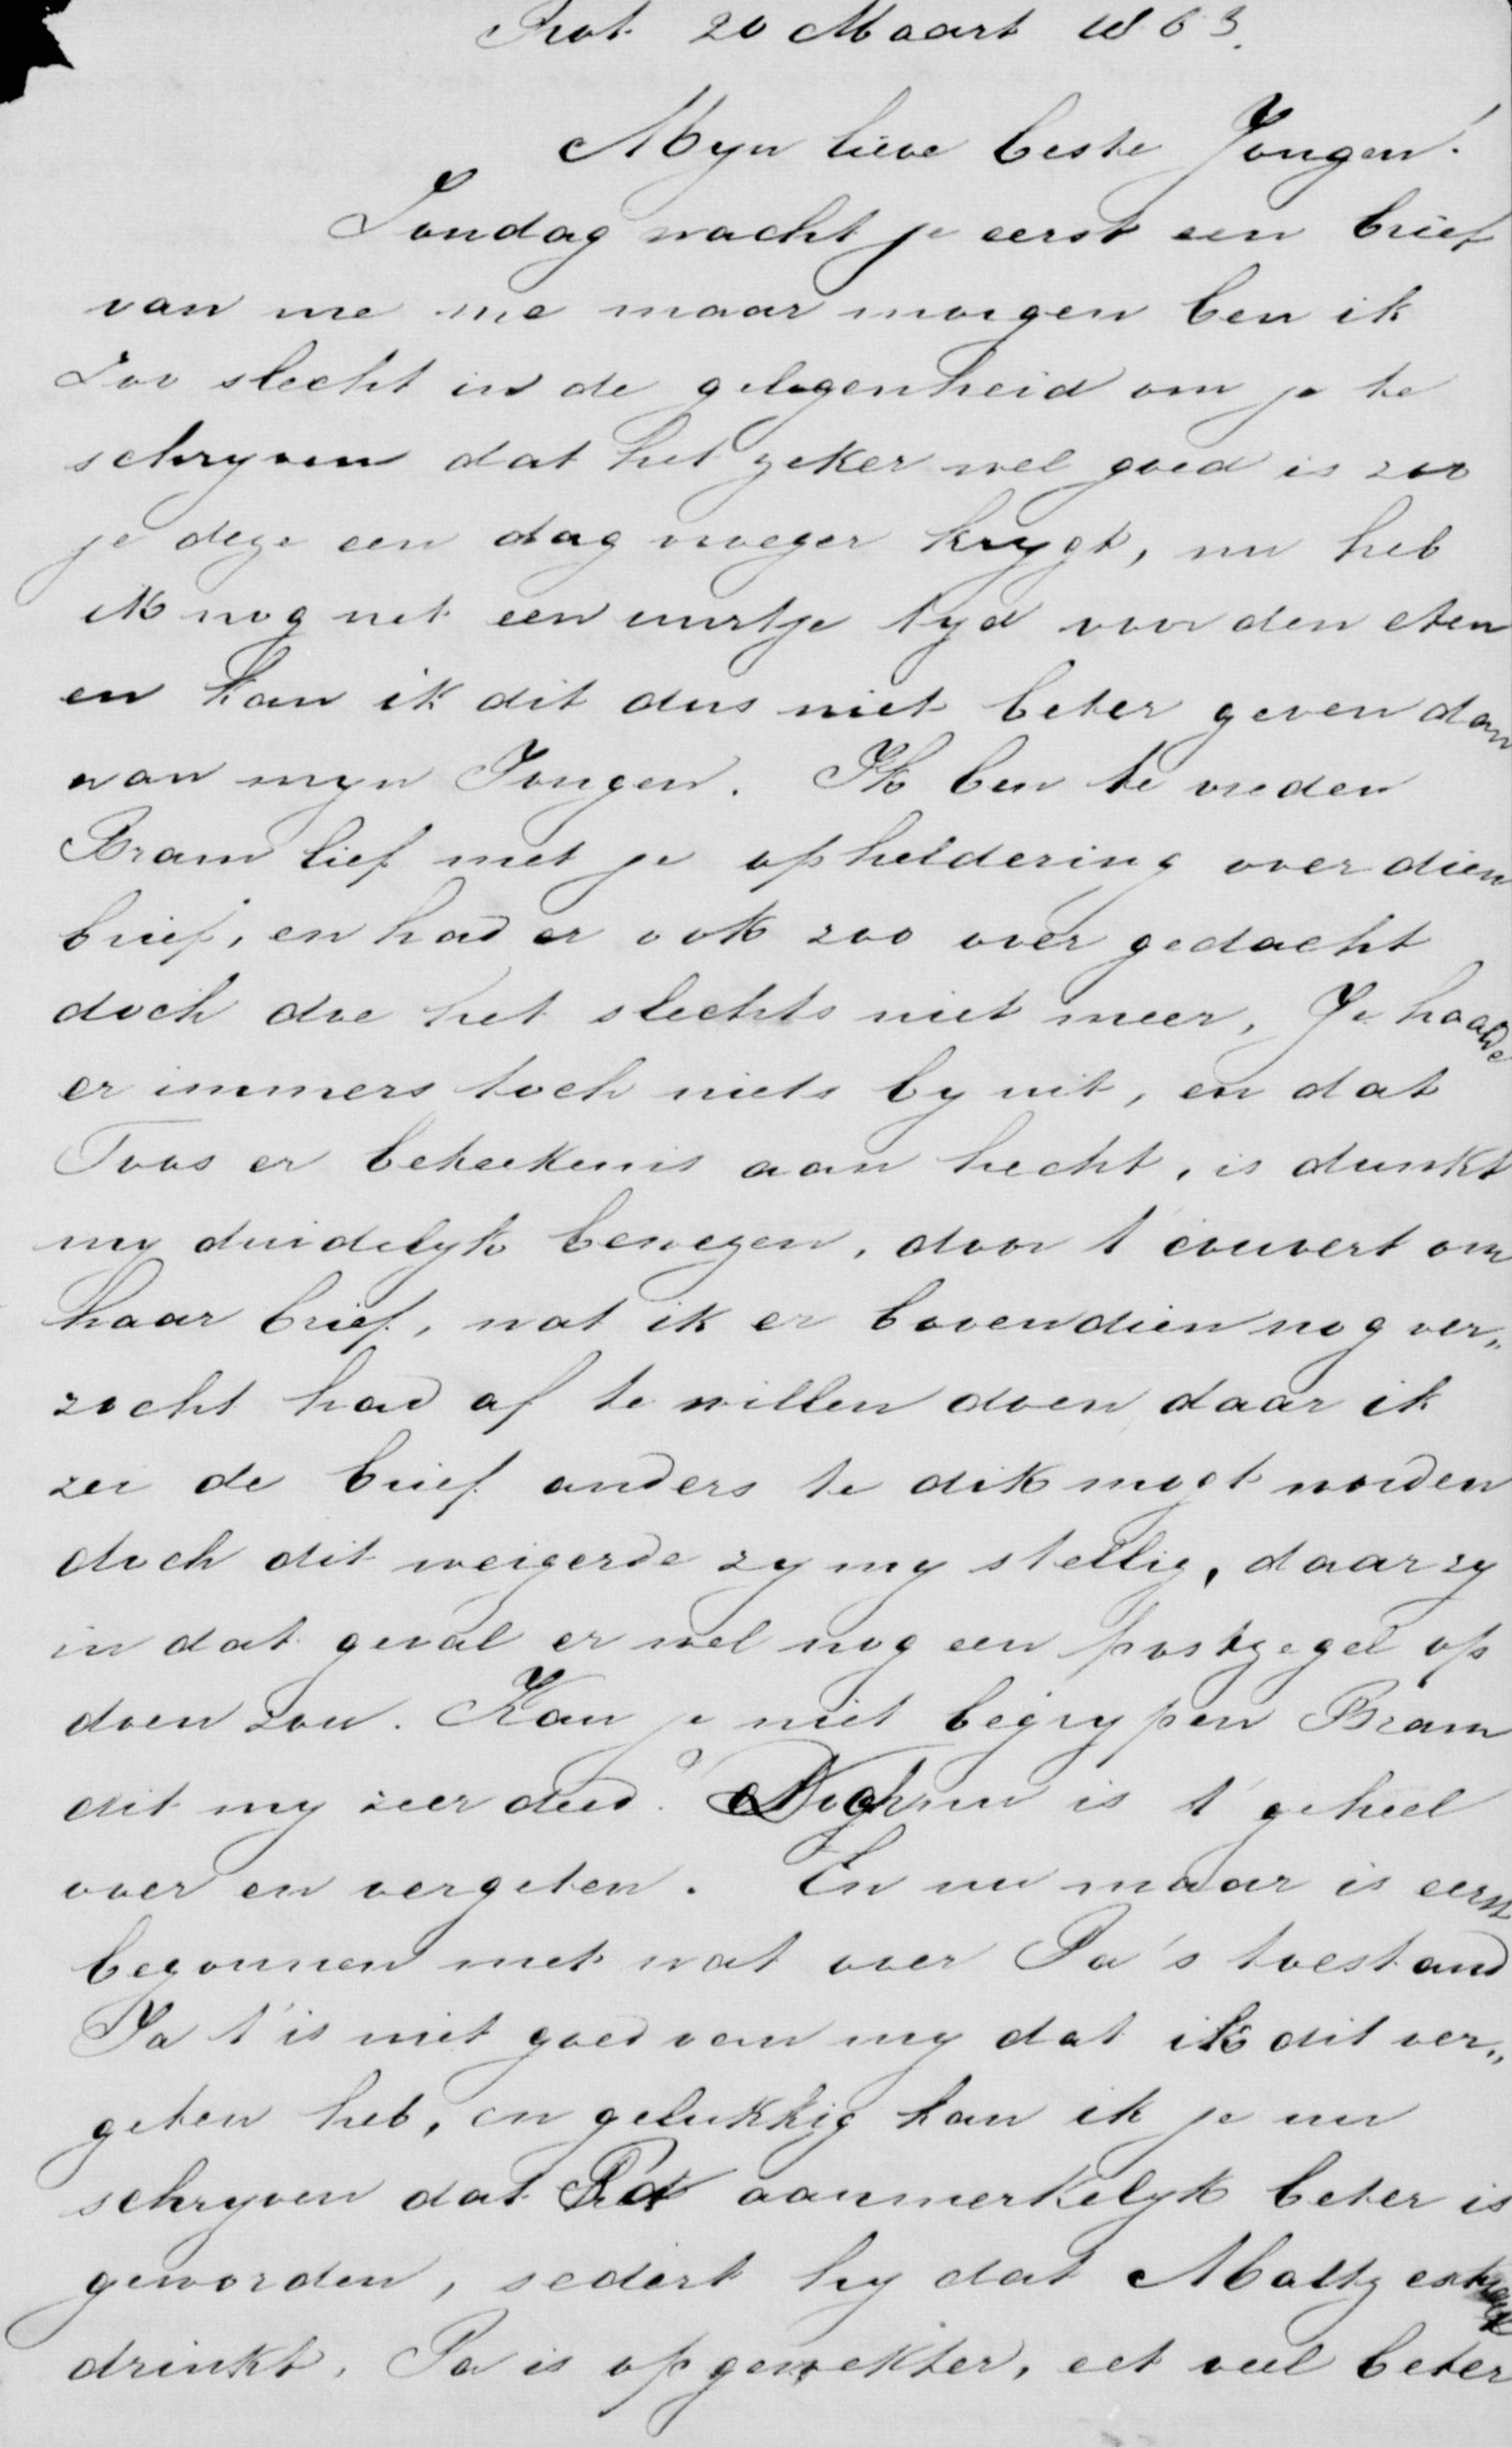 Rot. 20 Maart 1863.
Myn lieve beste Jongen!
Zondag wacht je eerst een brief
van me me maar morgen ben ik
zoo slecht in de gelegenheid om je te
schryven dat het zeker wel goed is zoo
je deze een dag vroeger krygt, nu heb
ik nog net een uurtje tyd voor den eten
en kan ik dit dus niet beter geven dan
aan myn Jongen. Ik ben te vreden
Bram lief met je opheldering over dien
brief, en had er ook zoo over gedacht
doch doe het slechts niet meer, Je haalde
er immers toch niets by uit, en dat
Toos er beteekenis aan hecht, is dunkt
my duidelyk bewezen, door t' couvert om
haar brief, wat ik er bovendien nog ver„
zocht had af te willen doen daar ik
zei de brief anders te dik mogt worden
doch dit weigerde zy my stellig, daar zy
in dat geval er wel nog een postzegel op
doen zou. Kan je niet begrypen Bram
dit my zeer deed? is t' geheel
over en vergeten. En nu maar is eerst
begonnen met wat over Pa's toestand
Ja t' is niet goed van my dat ik dit ver„
geten heb, en gelukkig kan ik je nu
schryven dat Pa aanmerkelyk beter is
geworden, sedert hy dat Maltz extract
drinkt. Pa is opgewekter, eet veel beter